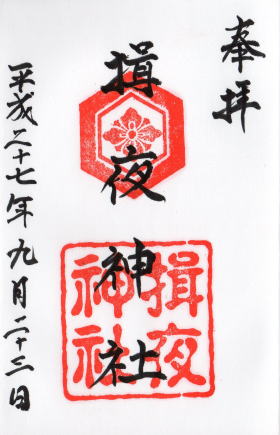 奉拝
揖夜神社
揖夜
神社
平成二十七年九月二十三日